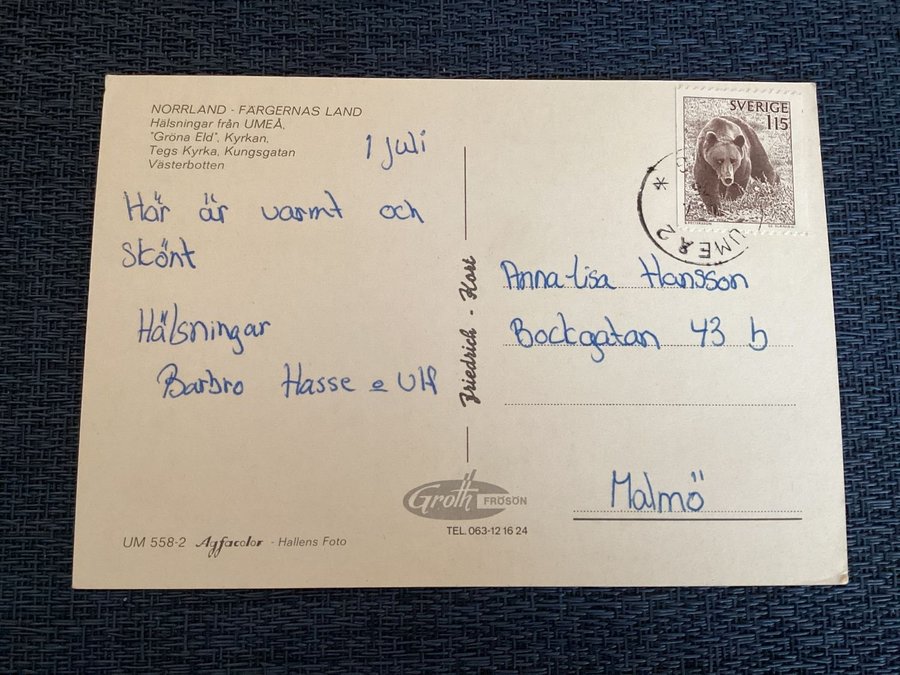 NORRLAND - FÄRGERNAS LAND
Hälsningar från UMEÅ,
"Gröna Eld", Kyrkan,
Tegs Kyrka, Kungsgatan
Västerbotten
1 juli
Här är varmt och
skönt
Hälsningar
Barbro Hasse o Ulf
SVERIGE
115
UMEÅ 2
Anna-Lisa Hansson
Bockgatan 43 b
Malmö
Friedrich - Kort
Groth FRÖSÖN
TEL. 063-12 16 24
UM 558-2 Agfacolor - Hallens Foto